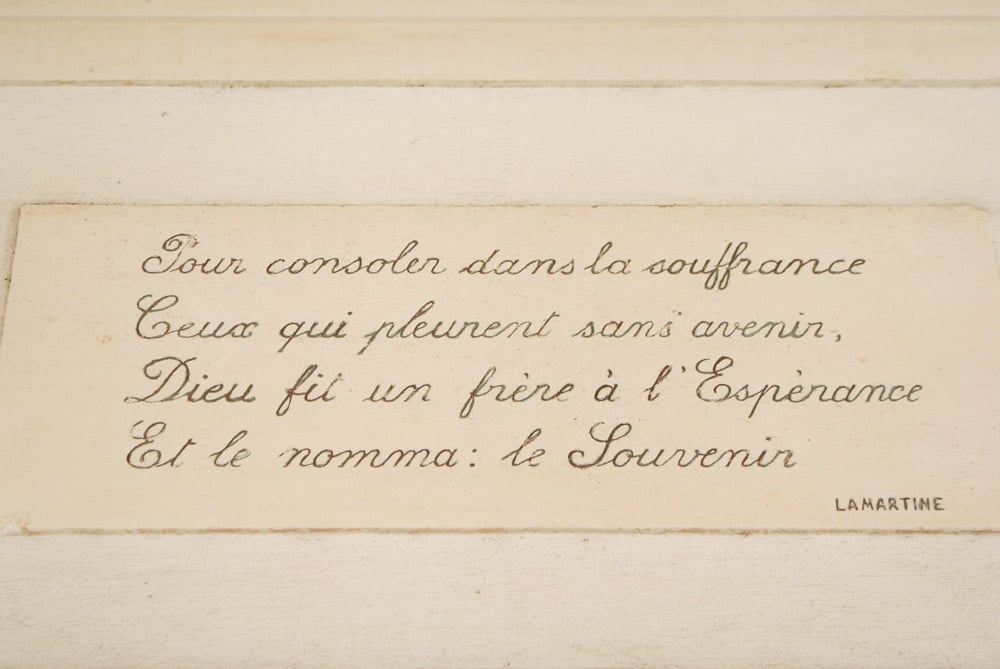 Pour consoler dans la souffrance
Ceux qui pleurent sans avenir,
Dieu fit un frère à l'Espèrance
Et le nomma: le Souvenir
LAMARTINE